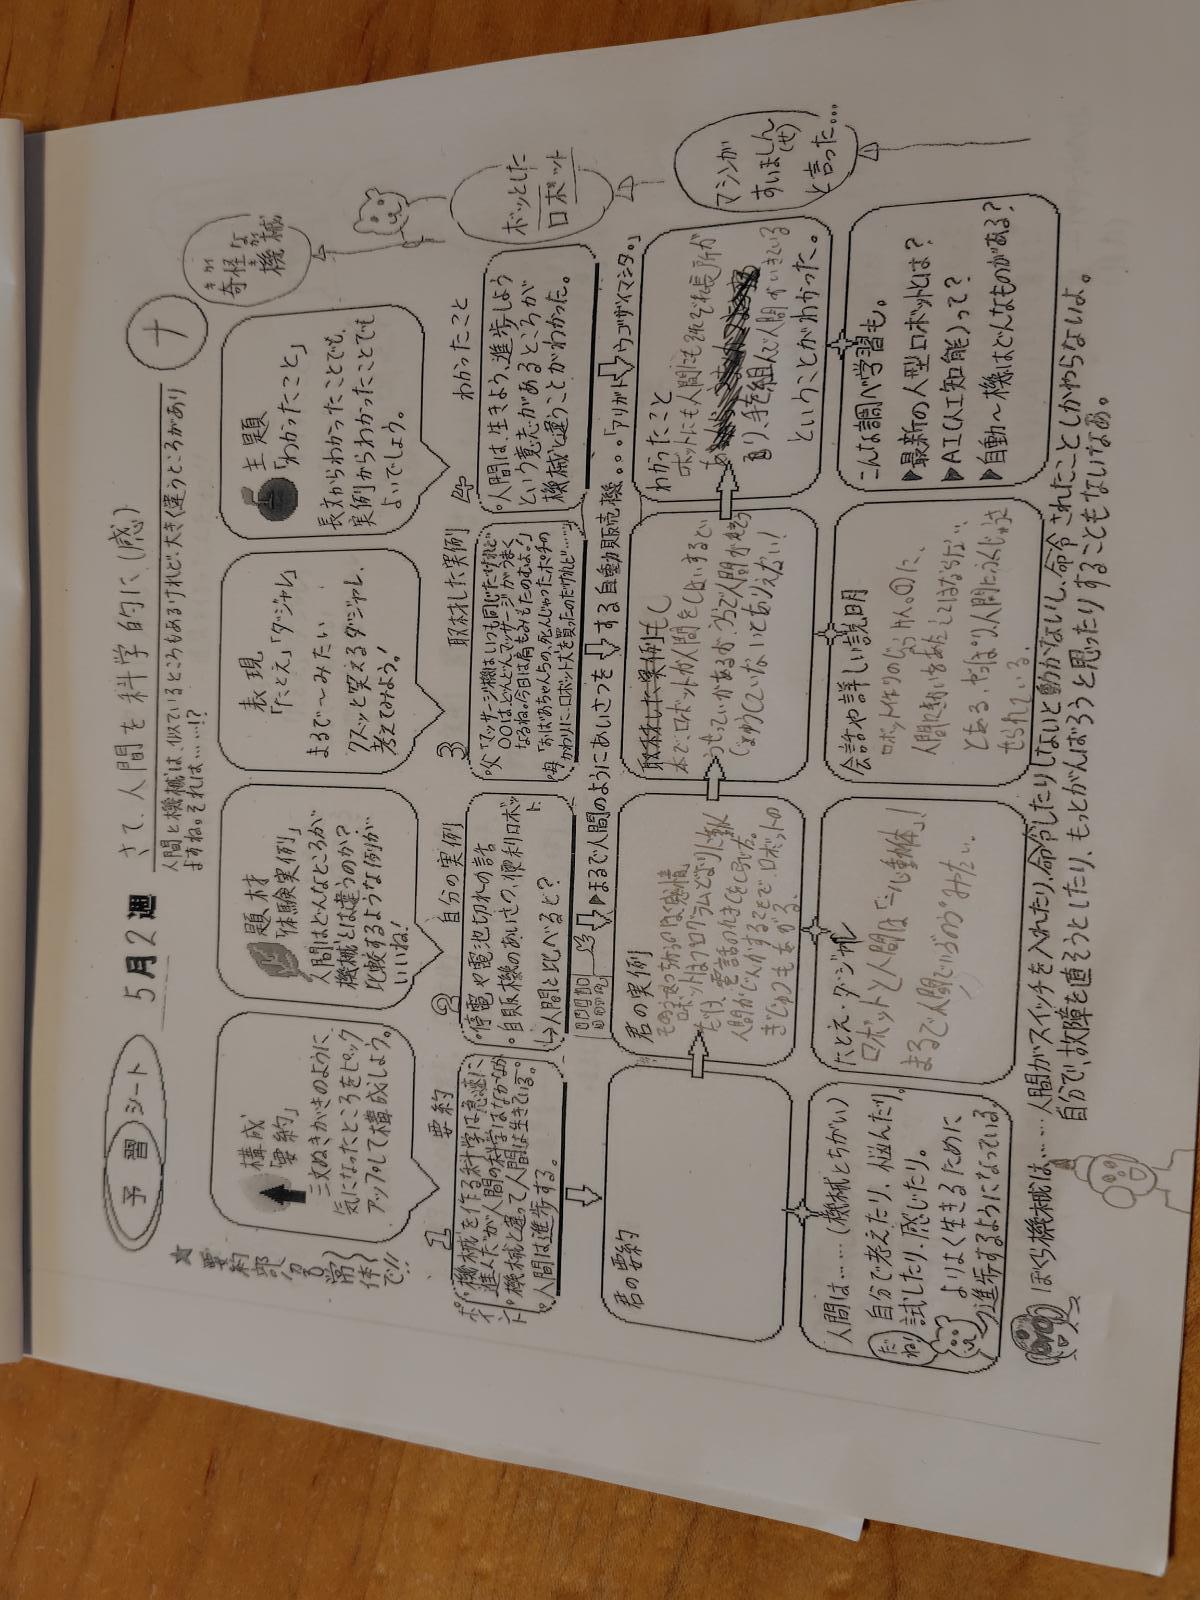 予習シート
5月2週
さて、人間を科学的に(感)
ナ
人間と機械は、似ているところもあるけれど、大きく違うところがあり
ますね。それは……!?
奇怪な
きかい
機械
きかい
★要約部
分は
常体
で!!
構成
「要約」
三文ぬきがきのように
気になったところをピック
アップして構成しよう。
題材
「体験実例」
人間はどんなところが
機械とは違うのか?
比較するような例が
いいね!
表現
「たとえ」「ダジャレ」
まるで〜みたい
クスッと笑えるダジャレ、
考えてみよう!
主題
「わかったこと」
長文からわかったことでも、
実例からわかったことでも
よいでしょう。
ボッとした
ロボット
1
要約
ポイント
機械を作る科学は急速に
進んだが人間の科学はなかなか
機械と違って人間は生きている。
人間は進歩する。
2
自分の実例
停電や電池切れの話
自販機のあいさつ、便利ロボット
↳人間と比べると?
3
取材した実例
父「マッサージ機はいつも同じだけれど
○○はどんどんマッサージがうまく
なるね。今日は肩もみもたのむよ。」
母「おばあちゃんちの、死んじゃったポチの
かわりに、ロボット犬を買ったのだけれど……」
4
わかったこと
人間は、生きよう、進歩しよう
という意志があるところが
機械と違うことがわかった。
▶まるで人間のようにあいさつをする自動販売機。。。「アリガトウゴザイマシタ。」
マシンが
すいましん
(せ)
と言った…
君の要約
君の実例
ロボットはプログラムどおりに動く
だけ、
人間が
取材した実例
本で、ロボットが人間をしはいすると
わかったこと
ロボットにも人間にもそれぞれ長所が
あり、手を組んで人間がいきている
ということがわかった。
人間は……(機械とちがい)
自分で考えたり、悩んだり、
試したり、感じたり。
だね!
よりよく生きるために
進歩するようになっている
たとえ・ダジャレ
ロボットと人間は「一心動体」!
まるで人間でいうのが みたい。
会話や詳しい説明
ロボット作りのげん則の1つに、
人間に
とある。やっぱり人間に
せられている。
こんな調べ学習も。
▶最新の人型ロボットとは?
▶AI(人工知能)って?
▶自動〜機はどんなものがある?
ぼくら機械は……人間がスイッチを入れたり、命令したりしないと動かないし、命令されたことしかやらないよ。
自分で、故障を直そうとしたり、もっとがんばろうと思ったりすることもないなあ。